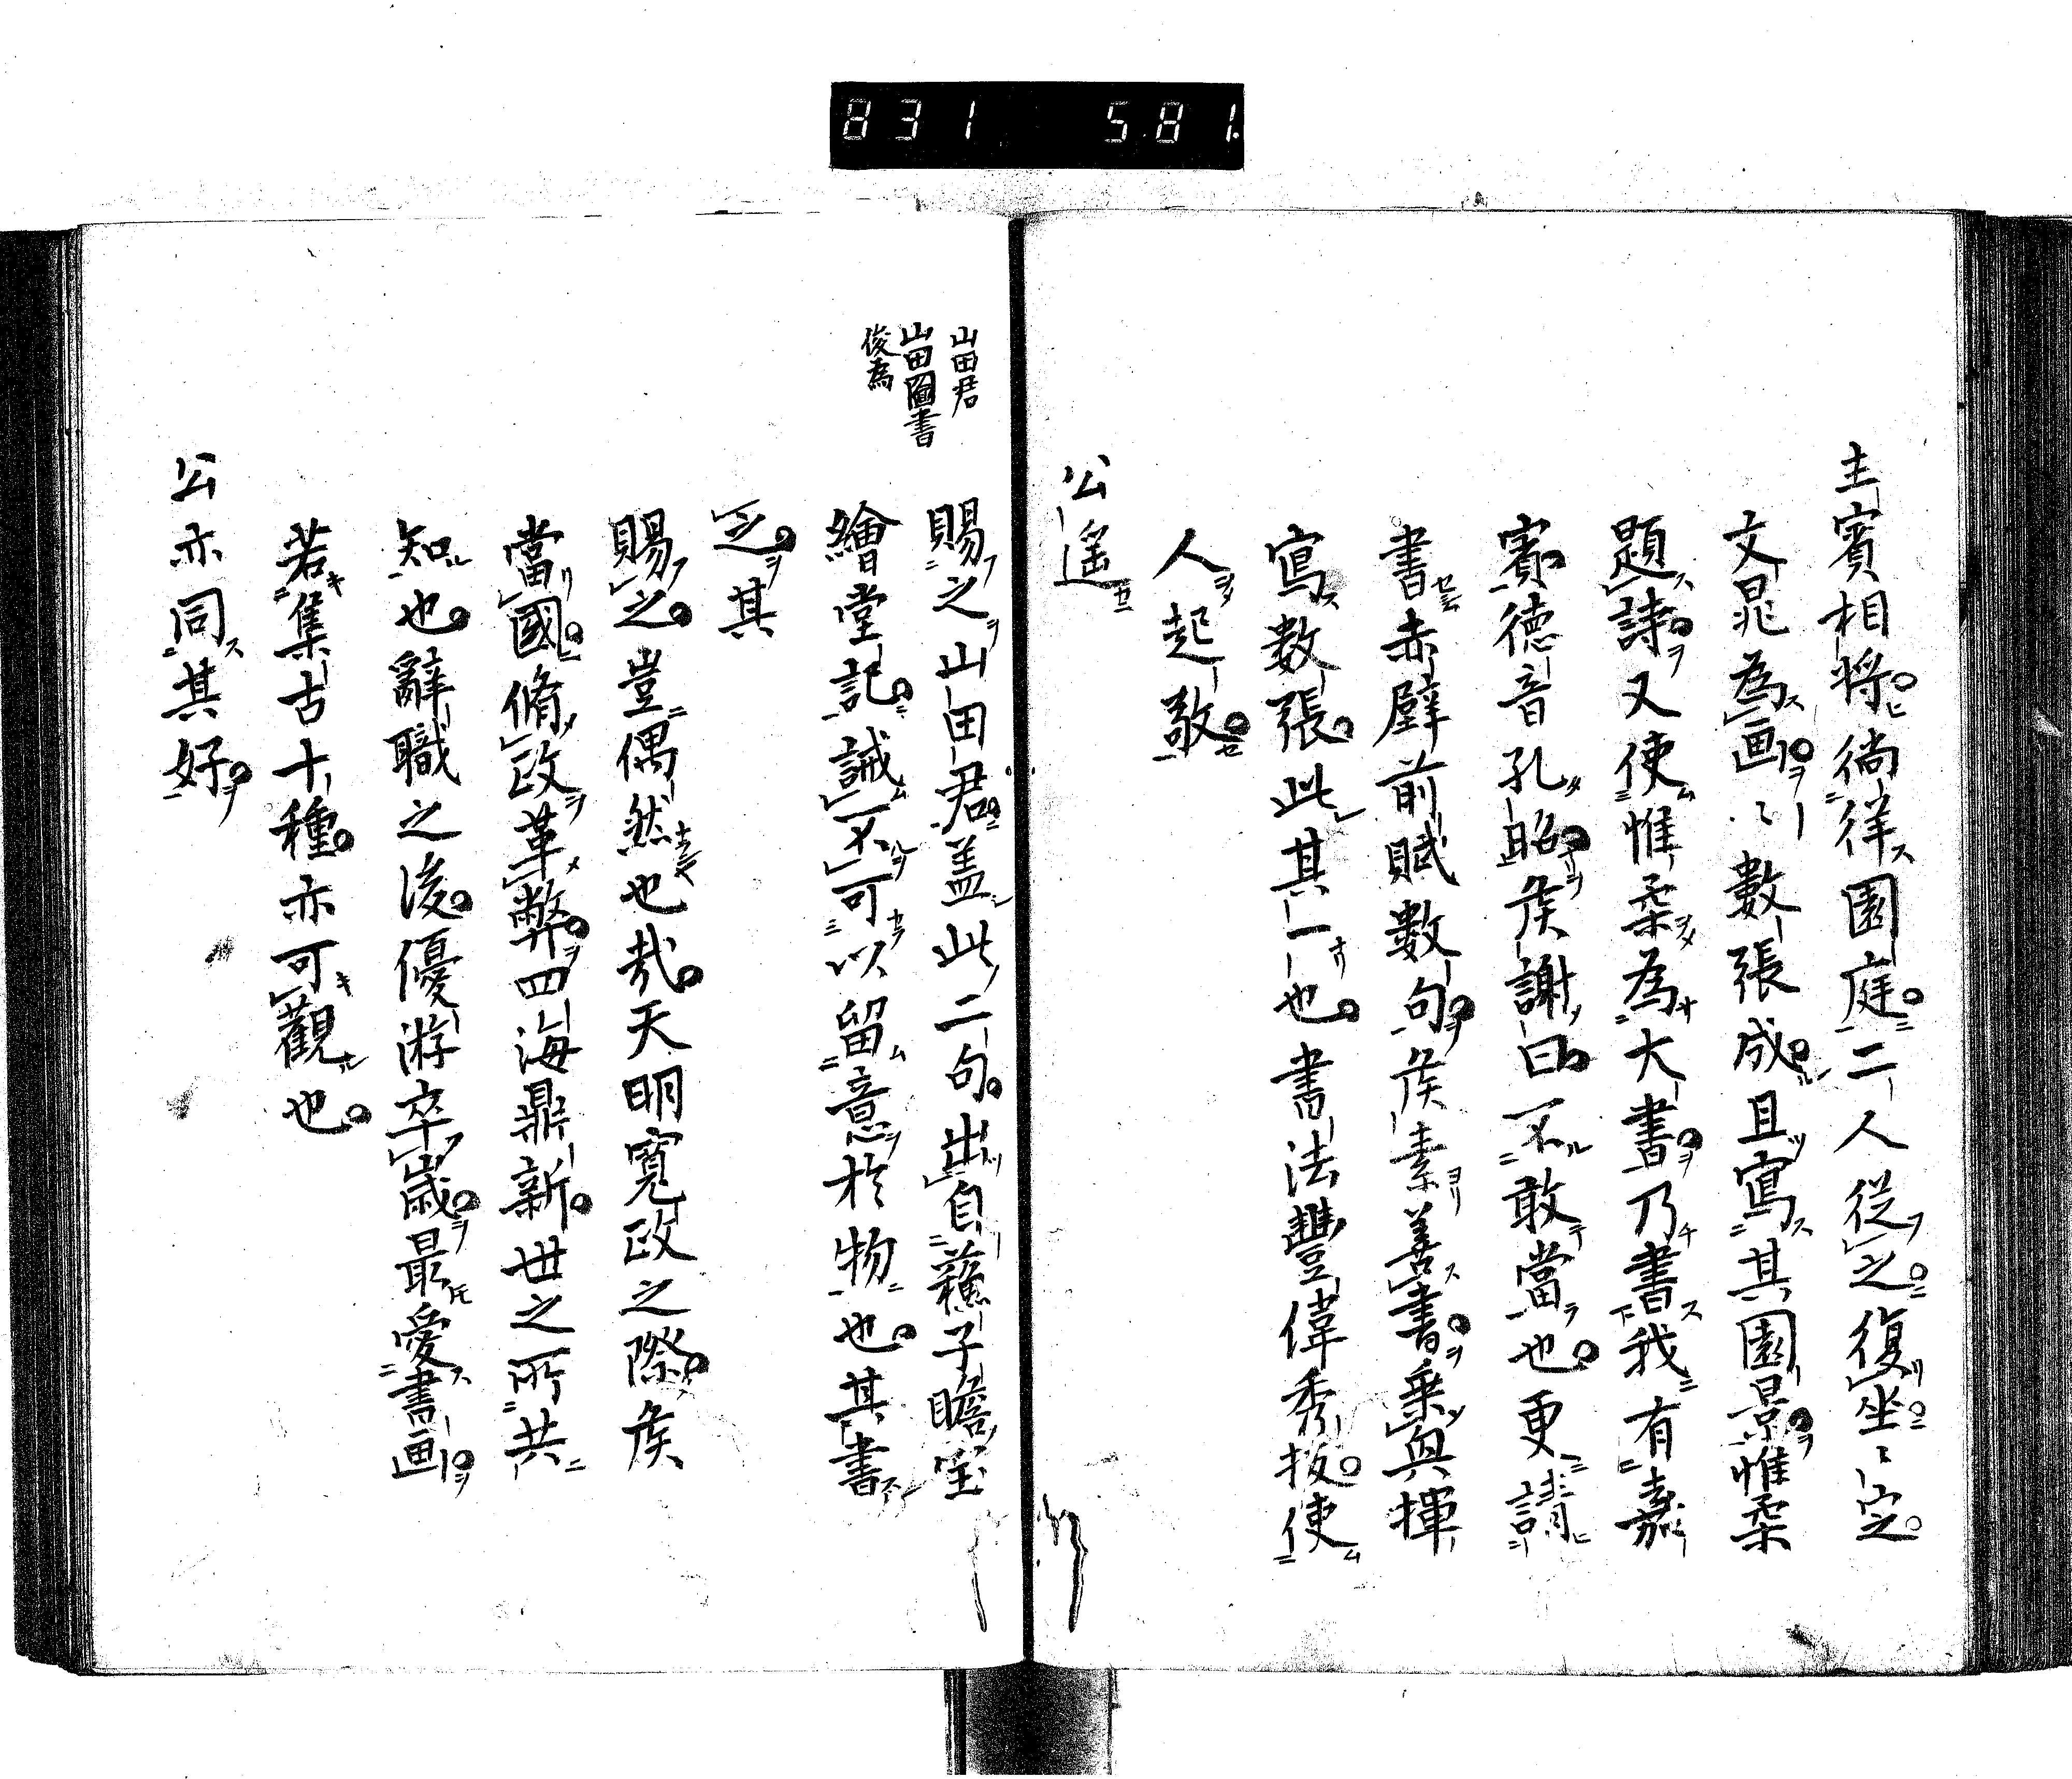 831 581.
主賓相將徜徉園庭二人従之復坐〻定
文晁為画〻數張成且寫其園景惟柔
題詩又使惟柔為大書乃書我有嘉
賓德音孔昭矦謝曰不敢當也更請
書赤壁前賦數句矦素善書乗興揮
寫数張此其一也書法豐偉秀拔使
人起敬
公遥
賜之山田君盖此二句出自蘓子瞻宝
繪堂記誡不可以留意於物也其書
之其
賜之豈偶然也哉天明寛政之際矦
當國脩政革弊四海鼎新世之所共
知也辭職之後優游卒歳最愛書画
若集古十種亦可觀也
公亦同其好
山田君
山田圖書
俊為